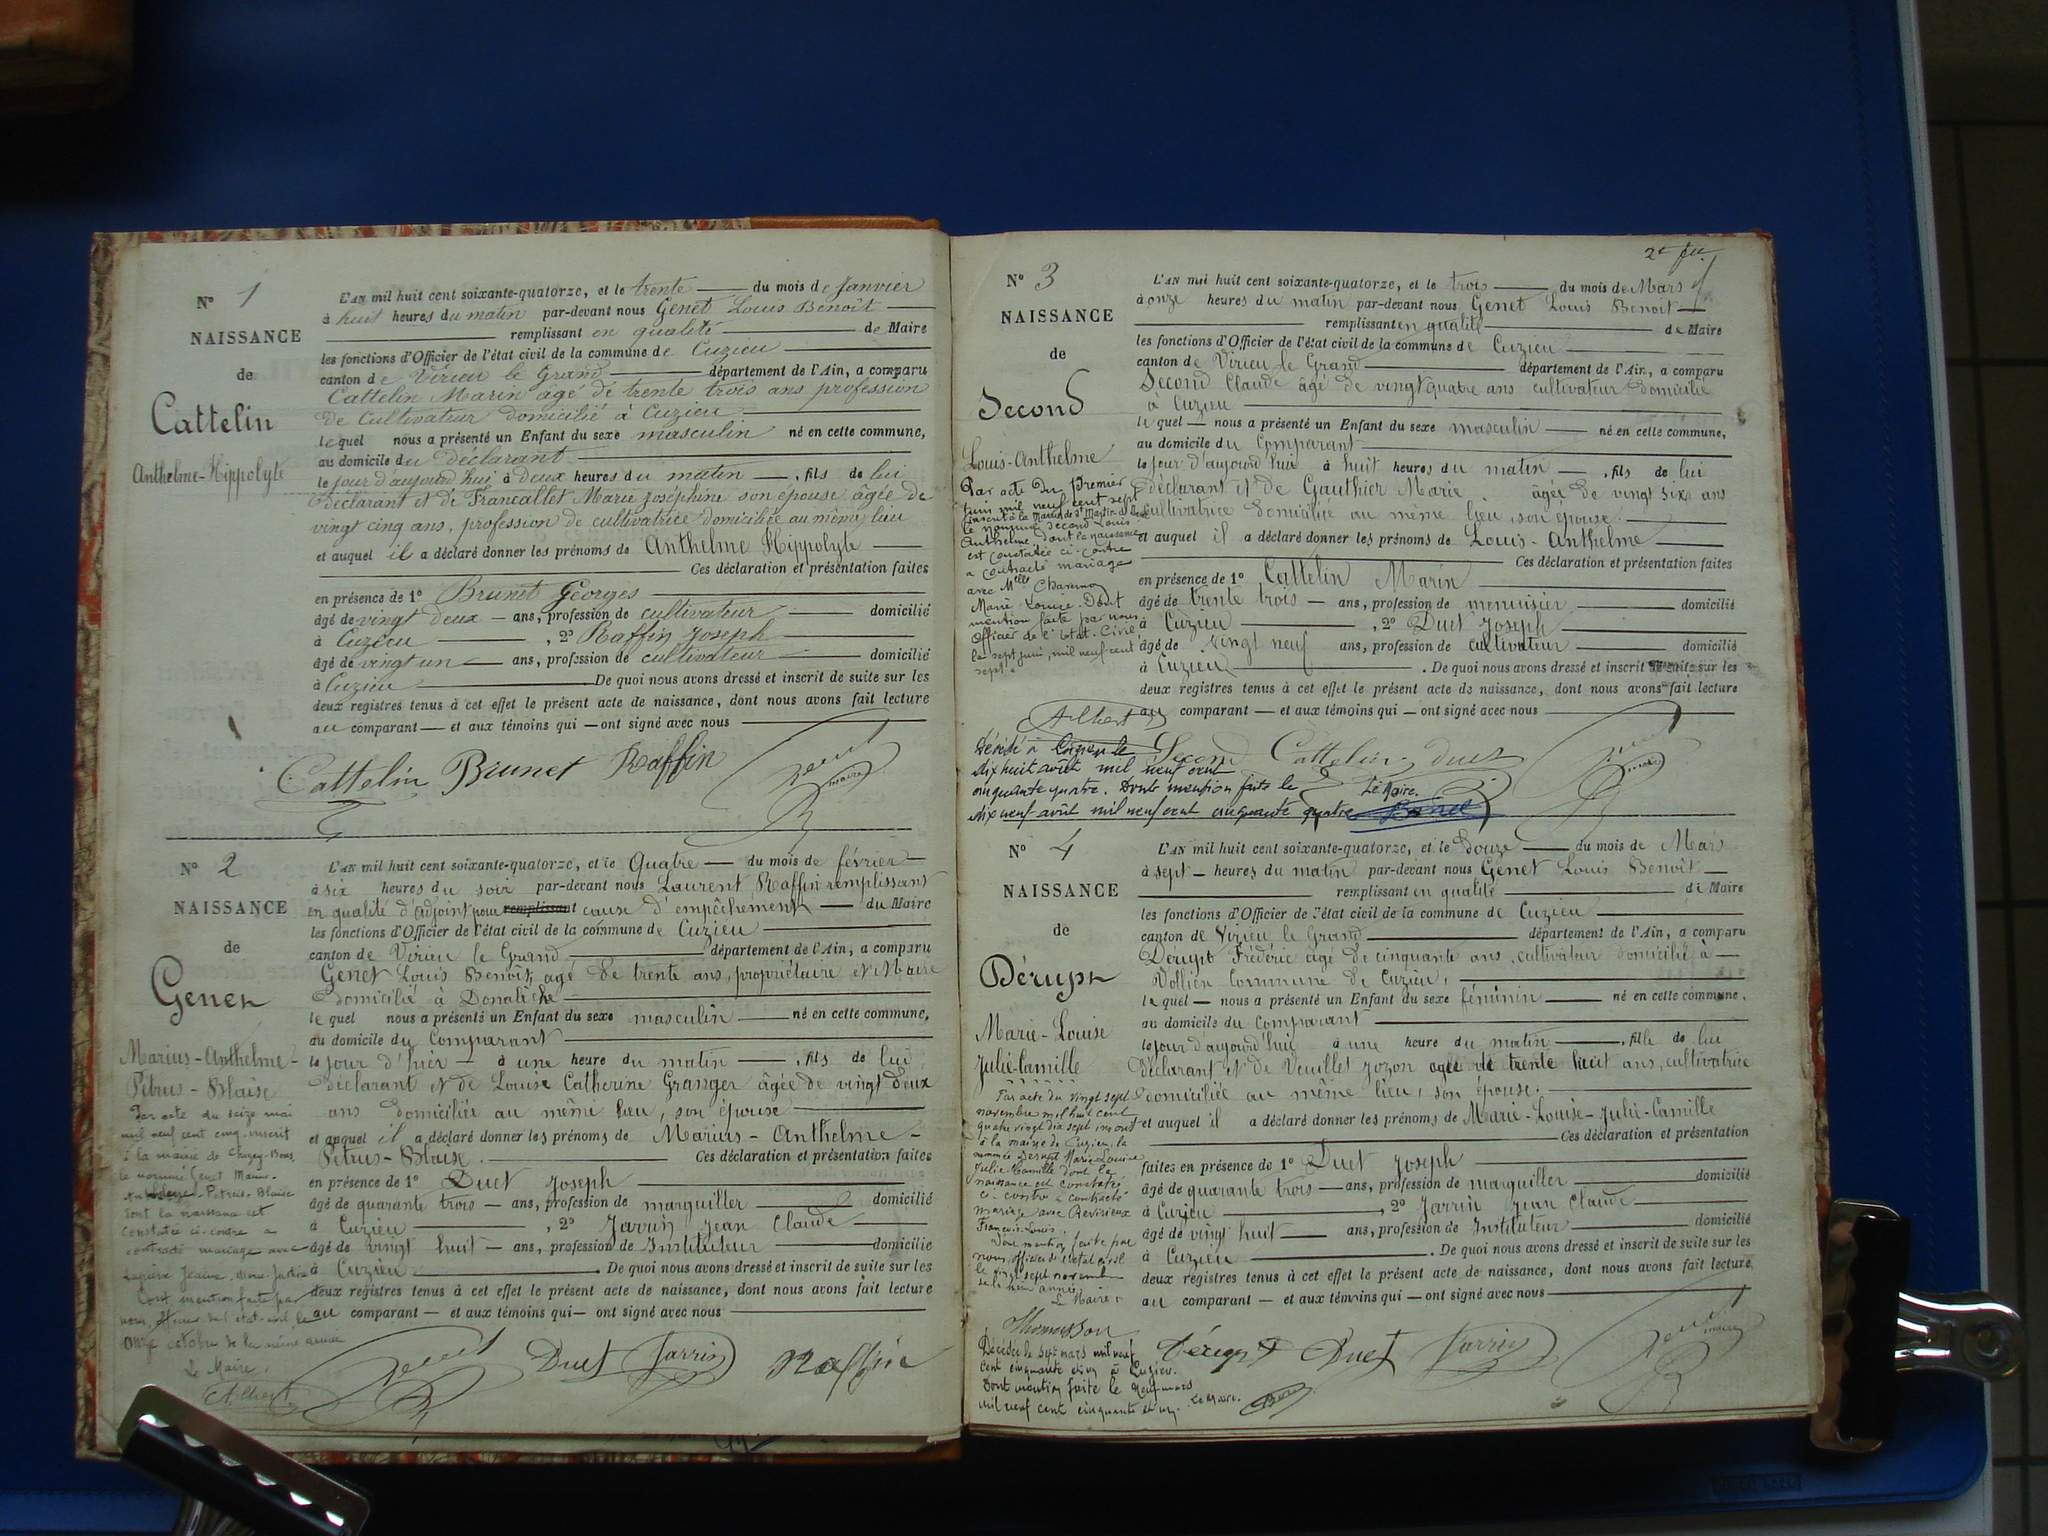 N° 1
NAISSANCE
de
Cattelin
Anthelme-Hippolyte
L'AN mil huit cent soixante-quatorze, et le trente du mois de Janvier
à huit heures du matin par-devant nous Genet Louis Benoît
remplissant en qualité de Maire
les fonctions d'Officier de l'état civil de la commune de Cuzieu
canton de Virieu le Grand département de l'Ain, a comparu
Cattelin Marin âgé de trente trois ans profession
de Cultivateur domicilié à Cuzieu
lequel nous a présenté un Enfant du sexe masculin né en cette commune,
au domicile du déclarant
le jour d'aujourd'hui à deux heures du matin, fils de lui
déclarant et de Francallet Marie Joséphine son épouse âgée de
vingt cinq ans, profession de cultivatrice domiciliée au même lieu
et auquel il a déclaré donner les prénoms de Anthelme Hippolyte
Ces déclaration et présentation faites
en présence de 1° Brunet Georges
âgé de vingt deux ans, profession de cultivateur domicilié
à Cuzieu, 2° Raffin Joseph
âgé de vingt un ans, profession de cultivateur domicilié
à Cuzieu. De quoi nous avons dressé et inscrit de suite sur les
deux registres tenus à cet effet le présent acte de naissance, dont nous avons fait lecture
au comparant et aux témoins qui ont signé avec nous
Cattelin Brunet Raffin Genet maire
N° 2
NAISSANCE
de
Genet
Marius-Anthelme-
Pétrus-Blaise
Par acte du seize mai
mil neuf cent cinq inscrit
à la mairie de
le nommé Genet Marius-
Anthelme-Petrus-Blaise
dont la naissance est
constatée ci-contre a
contracté mariage avec
Jeanne
Dont mention faite par
nous, officier de l'état-civil le
onze octobre de la même année
Le Maire,
Albert
L'AN mil huit cent soixante-quatorze, et le Quatre du mois de février
à six heures du soir par-devant nous Laurent Raffin remplissant
en qualité d'adjoint pour remplissant cause d'empêchement du Maire
les fonctions d'Officier de l'état civil de la commune de Cuzieu
canton de Virieu le Grand département de l'Ain, a comparu
Genet Louis Benoit, âgé de trente ans, propriétaire et Maire
domicilié à Donalèche
lequel nous a présenté un Enfant du sexe masculin né en cette commune,
au domicile du Comparant
le jour d'hier à une heure du matin, fils de lui
déclarant et de Louise Catherine Granger âgée de vingt deux
ans domiciliée au même lieu, son épouse
et auquel il a déclaré donner les prénoms de Marius-Anthelme-
Pétrus-Blaise. Ces déclaration et présentation faites
en présence de 1° Duet Joseph
âgé de quarante trois ans, profession de marguiller domicilié
à Cuzieu, 2° Jarrin Jean Claude
âgé de vingt huit ans, profession de Instituteur domicilié
à Cuzieu. De quoi nous avons dressé et inscrit de suite sur les
deux registres tenus à cet effet le présent acte de naissance, dont nous avons fait lecture
au comparant et aux témoins qui ont signé avec nous
Genet Duet Jarrin Raffin
2e fet
N° 3
NAISSANCE
de
Second
Louis-Anthelme
Par acte du Premier
Juin mil neuf cent sept
inscrit à la Mairie de St Martin
le nommé Second Louis
Anthelme, dont la naissance
est constatée ci-contre
a contracté mariage
avec Melle
Marie Louise. Dont
mention faite par nous
Officier de l'Etat-Civil
le sept juin, mil neuf cent
sept.
Albert
L'AN mil huit cent soixante-quatorze, et le trois du mois de Mars
à onze heures du matin par-devant nous Genet Louis Benoit
remplissant en qualité de Maire
les fonctions d'Officier de l'état civil de la commune de Cuzieu
canton de Virieu le Grand département de l'Ain, a comparu
Second Claude âgé de vingt quatre ans cultivateur domicilié
à Cuzieu
lequel nous a présenté un Enfant du sexe masculin né en cette commune,
au domicile du Comparant
le jour d'aujourd'hui à huit heures du matin, fils de lui
déclarant et de Gauthier Marie, âgée de vingt six ans
cultivatrice domiciliée au même lieu, son épouse.
et auquel il a déclaré donner les prénoms de Louis-Anthelme
Ces déclaration et présentation faites
en présence de 1° Cattelin Marin
âgé de trente trois ans, profession de menuisier domicilié
à Cuzieu, 2° Duet Joseph
âgé de vingt neuf ans, profession de cultivateur domicilié
à Cuzieu. De quoi nous avons dressé et inscrit de suite sur les
deux registres tenus à cet effet le présent acte de naissance, dont nous avons fait lecture
au comparant et aux témoins qui ont signé avec nous
Second Cattelin Duet Genet maire
Décédé à Cuzieu le
dix huit août mil neuf cent
cinquante quatre. Dont mention faite le
dix neuf août mil neuf cent cinquante quatre
Le Maire.
N° 4
NAISSANCE
de
Dérupt
Marie-Louise
Julie-Camille
Par acte du vingt sept
novembre mil huit cent
quatre vingt dix sept inscrit
à la mairie de Cuzieu, la
nommée Dérupt Marie Louise
Julie Camille dont la
naissance est constatée
ci-contre a contracté
mariage avec Revirieux
François-Louis
Dont mention faite par
nous, officier de l'état civil
le vingt sept novembre
de la même année
Le Maire:
Thomasson
Décédée le sept mars mil neuf
cent cinquante et un à Cuzieu.
Dont mention faite le neuf mars
mil neuf cent cinquante et un. Le Maire.
L'AN mil huit cent soixante-quatorze, et le Douze du mois de Mars
à sept heures du matin par-devant nous Genet Louis Benoit
remplissant en qualité de Maire
les fonctions d'Officier de l'état civil de la commune de Cuzieu
canton de Virieu le Grand département de l'Ain, a comparu
Dérupt Frédéric âgé de cinquante ans, cultivateur domicilié à
Vollien Commune de Cuzieu,
lequel nous a présenté un Enfant du sexe féminin né en cette commune,
au domicile du Comparant
le jour d'aujourd'hui à une heure du matin, fille de lui
déclarant et de Veuillet Jozon agée de trente huit ans, cultivatrice
domiciliée au même lieu, son épouse.
et auquel il a déclaré donner les prénoms de Marie-Louise-Julie-Camille
Ces déclaration et présentation
faites en présence de 1° Duet Joseph
âgé de quarante trois ans, profession de marguiller domicilié
à Cuzieu, 2° Jarrin Jean Claude
âgé de vingt huit ans, profession de Instituteur domicilié
à Cuzieu. De quoi nous avons dressé et inscrit de suite sur les
deux registres tenus à cet effet le présent acte de naissance, dont nous avons fait lecture
au comparant et aux témoins qui ont signé avec nous
Dérupt Duet Jarrin Genet maire